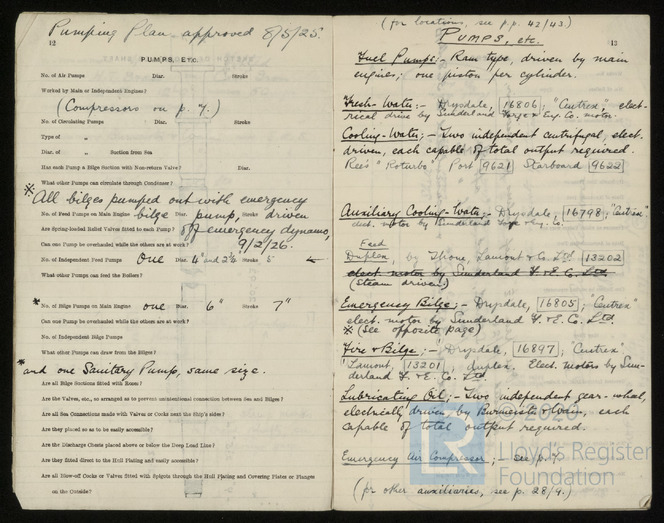 Pumping Plan approved 8/5/25
12
PUMPS, ETC.
No. of Air Pumps Diar. Stroke
Worked by Main or Independent Engines?
(Compressors on p. 7.)
No. of Circulating Pumps Diar. Stroke
Type of „
Diar. of „ Suction from Sea
Has each Pump a Bilge Suction with Non-return Valve? Diar.
What other Pumps can circulate through Condenser?
* All bilges pumped out with emergency
No. of Feed Pumps on Main Engine bilge Diar. pump, Stroke driven
Are Spring-loaded Relief Valves fitted to each Pump? off emergency dynamo,
Can one Pump be overhauled while the others are at work? 9/2/26.
No. of Independent Feed Pumps One Diar. 4" and 2½ Stroke 5
What other Pumps can feed the Boilers?
* No. of Bilge Pumps on Main Engine one Diar. 6" Stroke 7"
Can one Pump be overhauled while the others are at work?
No. of Independent Bilge Pumps
What other Pumps can draw from the Bilges?
* and one Sanitary Pump, same size.
Are all Bilge Suctions fitted with Roses?
Are the Valves, etc., so arranged as to prevent unintentional connection between Sea and Bilges?
Are all Sea Connections made with Valves or Cocks next the Ship's sides?
Are they placed so as to be easily accessible?
Are the Discharge Chests placed above or below the Deep Load Line?
Are they fitted direct to the Hull Plating and easily accessible?
Are all Blow-off Cocks or Valves fitted with Spigots through the Hull Plating and Covering Plates or Flanges
on the Outside?
(for locations, see p.p. 42/43)
13
PUMPS, etc.
Fuel Pumps:- Ram type, driven by main
engines; one piston per cylinder.
Fresh-Water:- Drysdale, 16806; "Centrex", elect-
rical drive by Sunderland Forge & Eng. Co. motor.
Cooling-Water:- Two independent centrifugal, elect.
driven, each capable of total output required.
Rees "Roturbo" Port 9621 Starboard 9622
Auxiliary Cooling-Water:- Drysdale, 16798, "Centrex"
elect. motor by Sunderland Forge & Eng. Co.
Feed
Duplex, by Thone, Lamont & Co. Ltd 13202
elect. motor by Sunderland F. & E. Co. Ltd.
(Steam driven)
Emergency Bilge:- Drysdale, 16805; "Centrex"
elect. motor by Sunderland F. & E. Co. Ltd.
* (See opposite page)
Fire & Bilge;- Drysdale, 16897; "Centrex"
Lamont, 13201, duplex. Elect. motors by Sun-
derland F. & E. Co. Ltd
Lubricating Oil;- Two independent gear-wheel,
electrically driven, by Burmeister & Wain, each
capable of total output required.
Emergency Air Compressor; see p. 7
(for other auxiliaries, see p. 28/9.)
© 2026
LR
Lloyd's Register
Foundation